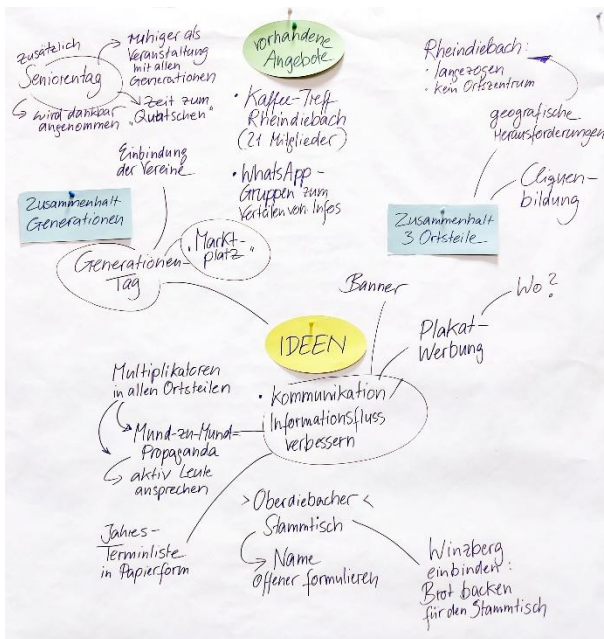 zusätzlich
Seniorentag
→ ruhiger als
Veranstaltung
mit allen
Generationen
→ Zeit zum
"Quatschen"
→ wird dankbar
angenommen
vorhandene
Angebote
• Kaffee-Treff
Rheindiebach
(21 Mitglieder)
• WhatsApp-
Gruppen zum
Verteilen von Infos
Rheindiebach:
• langezogen
• kein Ortszentrum
geografische
Herausforderungen
Cliquen-
bildung
Zusammenhalt
3 Ortsteile
Einbindung
der Vereine
Zusammenhalt
Generationen
"Markt-
platz"
Generationen-
Tag
IDEEN
Banner
Plakat-
Werbung
Wo?
• Kommunikation
Informationsfluss
verbessern
Multiplikatoren
in allen Ortsteilen
→ Mund-zu-Mund=
Propaganda
→ aktiv Leute
ansprechen
Jahres-
Terminliste
in Papierform
> Oberdiebacher <
Stammtisch
→ Name
Offener formulieren
Winzberg
einbinden:
Brot backen
für den Stammtisch